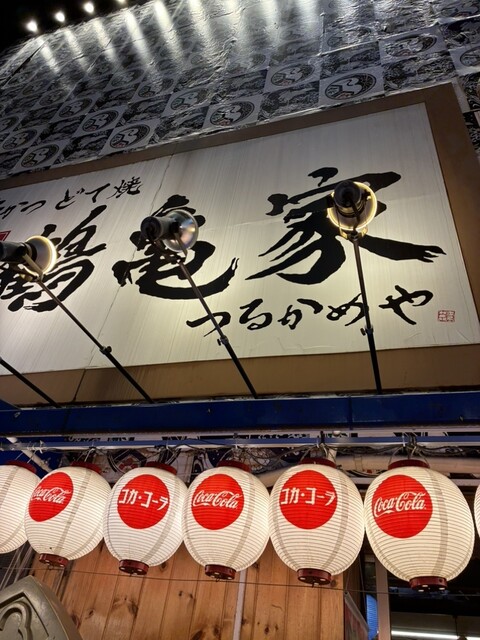 かつ どて焼
鶴亀家
つるかめや
Coca-Cola
コカ・コーラ
Coca-Cola
コカ・コーラ
Coca-Cola